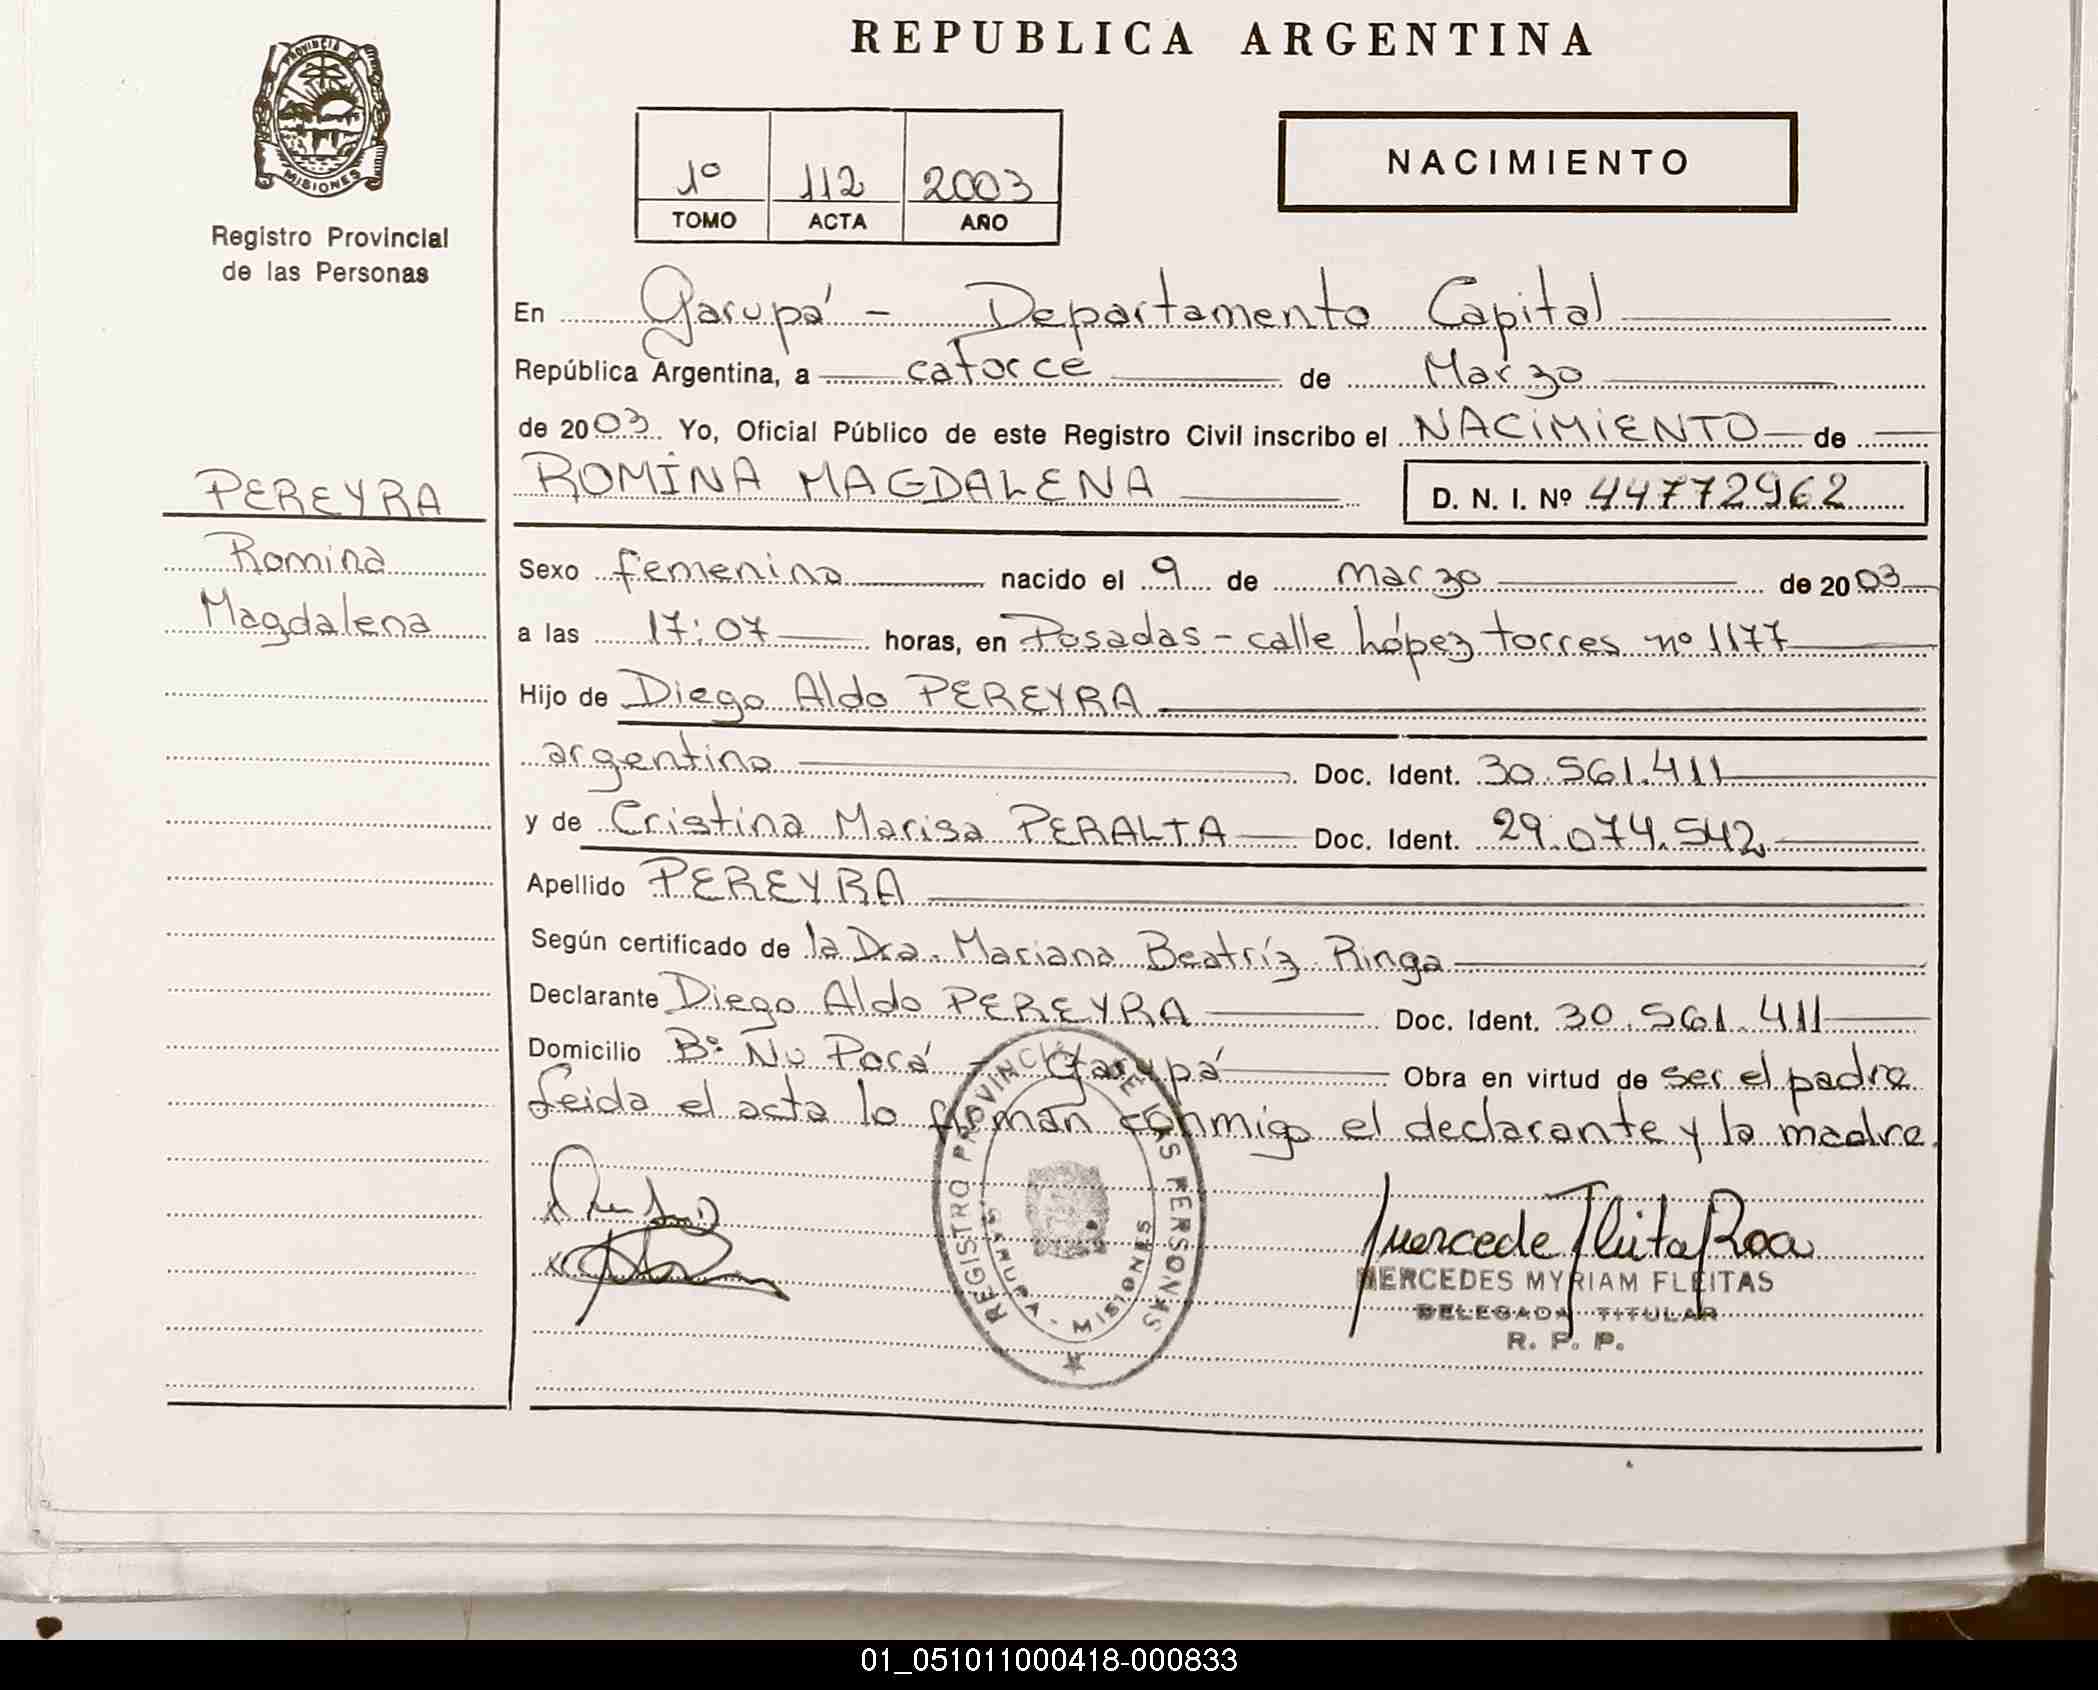 REPUBLICA ARGENTINA
PROVINCIA DE
MISIONES
Registro Provincial
de las Personas
1º 112 2003
TOMO ACTA AÑO
NACIMIENTO
En Garupá - Departamento Capital
República Argentina, a catorce de Marzo
de 2003 Yo, Oficial Público de este Registro Civil inscribo el NACIMIENTO de
PEREYRA
Romina
Magdalena
ROMINA MAGDALENA D. N. I. Nº 44772962
Sexo femenino nacido el 9 de marzo de 2003
a las 17:07 horas, en Posadas - calle López torres nº 1177
Hijo de Diego Aldo PEREYRA
argentino Doc. Ident. 30.561.411
y de Cristina Marisa PERALTA Doc. Ident. 29.074.542
Apellido PEREYRA
Según certificado de la Dra. Mariana Beatríz Ringa
Declarante Diego Aldo PEREYRA Doc. Ident. 30.561.411
Domicilio Bº Ñu Porá - Garupá Obra en virtud de ser el padre
Leida el acta lo firman conmigo el declarante y la madre.
REGISTRO PROVINCIAL DE LAS PERSONAS
GARUPA - MISIONES
MERCEDES MYRIAM FLEITAS
DELEGADA TITULAR
R. P. P.
01_051011000418-000833